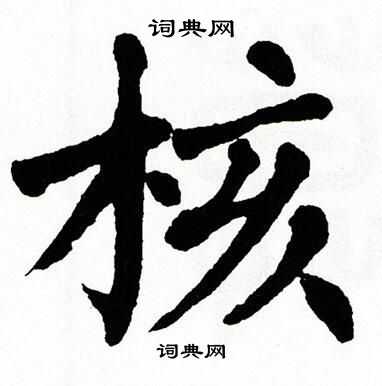 词典网
核
词典网